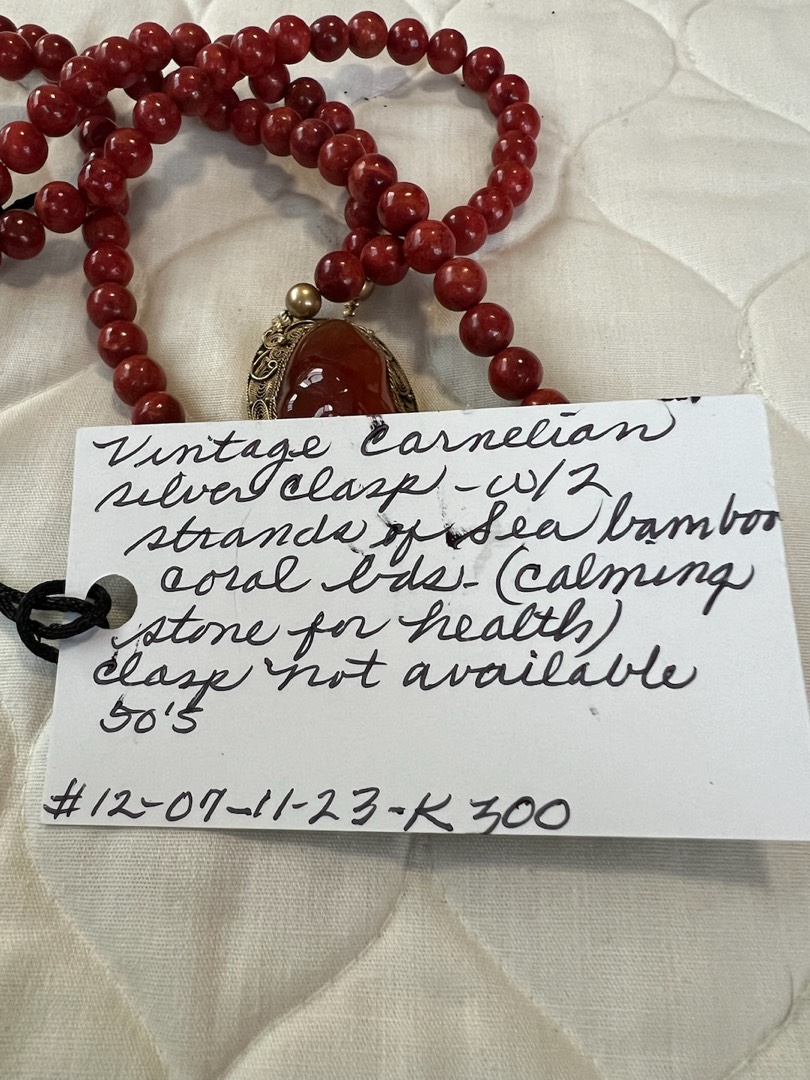 Vintage Carnelian
silver clasp - w/2
strands of Sea bamboo
coral bds. - (calming
stone for health)
clasp not available
50's
#12-07-11-23-K 300